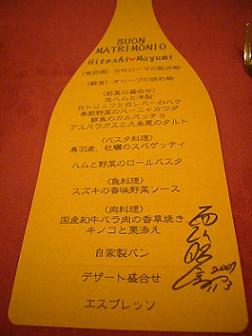 BUON
MATRIMONIO
Hitoshi♥Mayumi
〈食前酒〉古代ローマの飲み物
〈軽食〉オリーブの詰め物
〈前菜の盛合せ〉
生ハムと洋梨
白トリュフと白レバーのパテ
季節野菜のバーニャカウダ
鮮魚のカルパッチョ
アスパラガスと九条葱のタルト
〈パスタ料理〉
鳥羽産、牡蠣のスパゲッティ
ハムと野菜のロールパスタ
〈魚料理〉
スズキの香味野菜ソース
〈肉料理〉
国産和牛バラ肉の香草焼き
キノコと栗添え
自家製パン
デザート盛合せ
エスプレッソ
2007
11/3